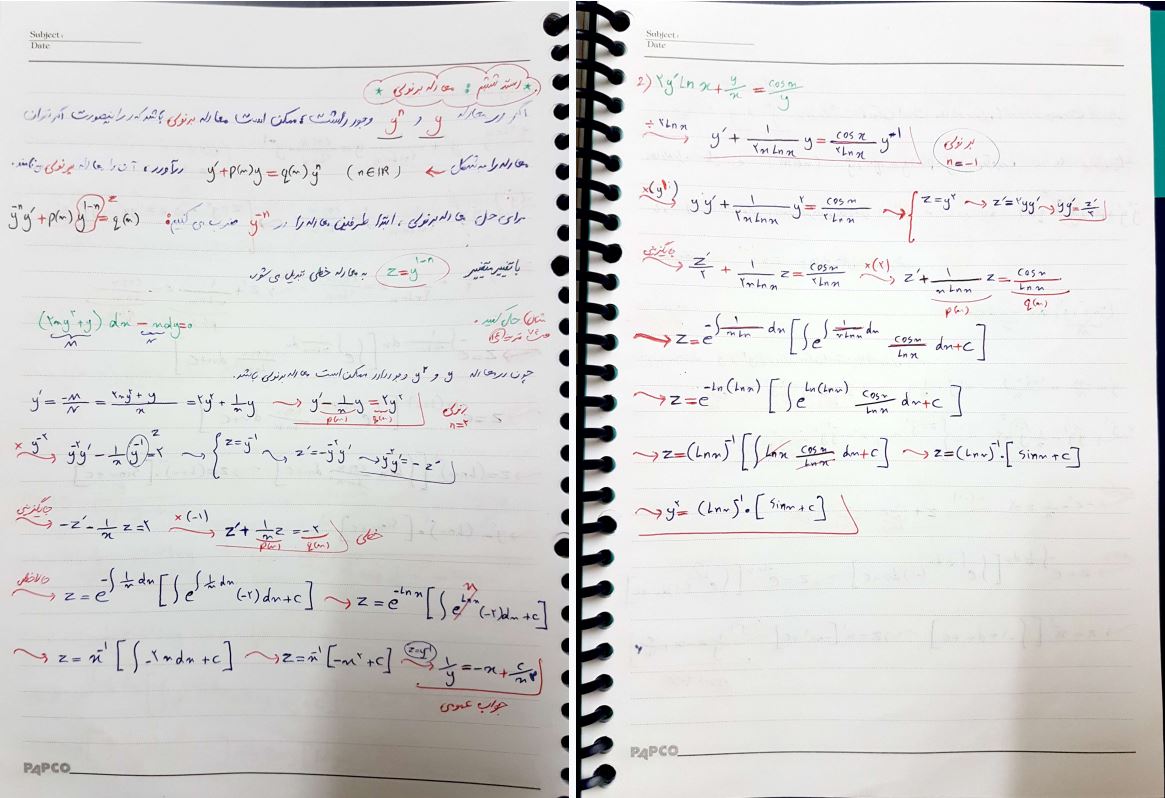 Subject:
Date
* استد ششم : معادله برنولی *
اگر در معادله y و yⁿ وجود داشت، ممکن است معادله برنولی باشد که در اینصورت اگر بتوان
معادله را به شکل ← y′+p(x)y=q(x)yⁿ (n∈IR) درآورد، آن را معادله برنولی می‌نامند.
برای حل معادله برنولی، ابتدا طرفین معادله را در y⁻ⁿ ضرب می‌کنیم: y⁻ⁿy′+p(x)y¹⁻ⁿ=q(x) z
با تغییر متغییر z=y¹⁻ⁿ به معادله خطی تبدیل می‌شود.
مثال) حل کنید.
(۲xy²+y)dx - xdy=0
M N
چون در معادله y و y² وجود دارد ممکن است معادله برنولی باشد.
y′=-M/N = (۲xy²+y)/x = ۲y²+1/x y ⇝ y′-1/x y=۲y² برنولی n=۲
p(x) q(x)
× y⁻² ⇝ y⁻²y′-1/x y⁻¹=۲ z ⇝ { z=y⁻¹ ⇝ z′=-y⁻²y′ ⇝ y⁻²y′=-z′
جایگزینی ⇝ -z′-1/x z=۲ ×(-1) ⇝ z′+1/x z=-۲ خطی
p(x) q(x)
⇝ z=e^(-∫1/x dx) [∫e^(∫1/x dx) (-۲)dx+c] ⇝ z=e^(-Ln x) [∫e^(Ln x) (-۲)dx+c] x
⇝ z=x⁻¹ [∫-۲xdx+c] ⇝ z=x⁻¹[-x²+c] z=y⁻¹ ⇝ 1/y=-x+c/x
جواب عمومی
PAPCO
Subject:
Date
2) ۲y′Ln x+y/x=cosx/y
÷۲Lnx ⇝ y′+1/(۲xLnx) y=cosx/(۲Lnx) y⁻¹ برنولی n=-1
×(y) ⇝ yy′+1/(۲xLnx) y²=cosx/(۲Lnx) ⇝ { z=y² ⇝ z′=۲yy′ ⇝ yy′=z′/۲
جایگزینی ⇝ z′/۲+1/(۲xLnx) z=cosx/(۲Lnx) ×(۲) ⇝ z′+1/(xLnx) z=cosx/Lnx
p(x) q(x)
⇝ z=e^(-∫1/(xLnx) dx) [∫e^(∫1/(xLnx) dx) cosx/Lnx dx+c]
⇝ z=e^(-Ln(Lnx)) [∫e^(Ln(Lnx)) cosx/Lnx dx+c]
⇝ z=(Lnx)⁻¹ [∫Lnx cosx/Lnx dx+c] ⇝ z=(Lnx)⁻¹.[sinx+c]
⇝ y²=(Lnx)⁻¹.[sinx+c]
PAPCO